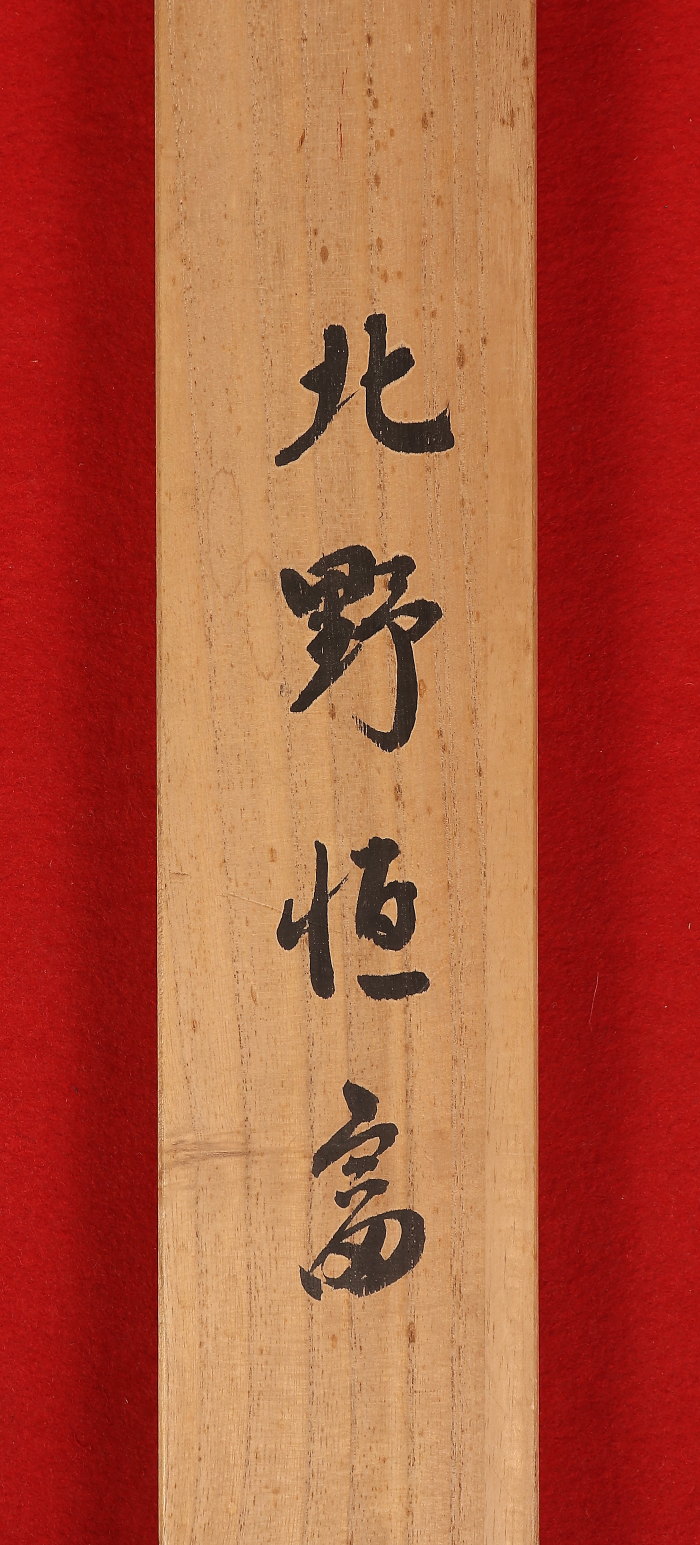 北野恒富